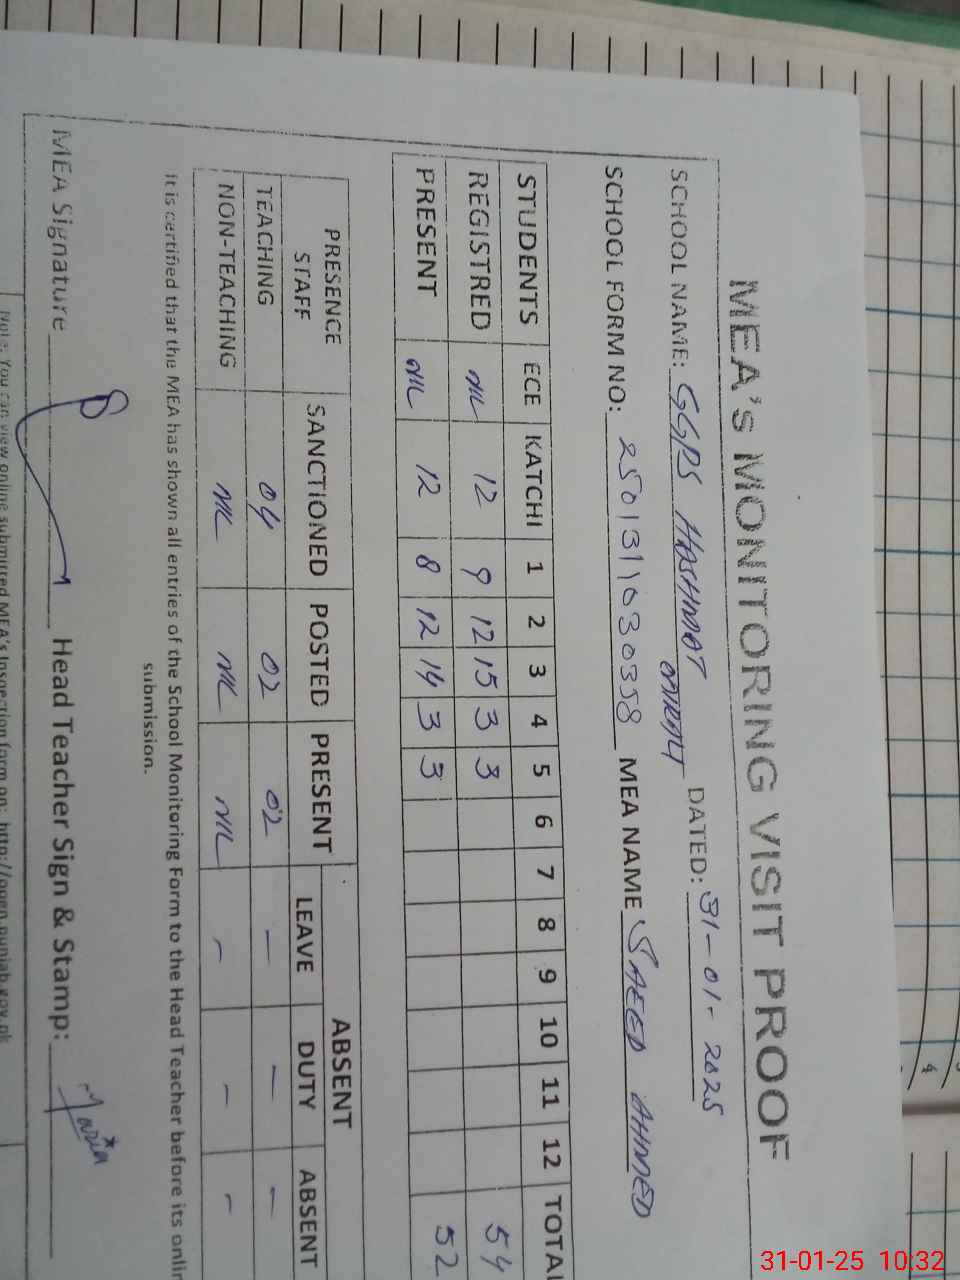 MEA's MONITORING VISIT PROOF
SCHOOL NAME: GGPS HASHMAT MIRALI DATED: 31-01-2025
SCHOOL FORM NO: 250131103030358 MEA NAME SAEED AHMED
STUDENTS ECE KATCHI 1 2 3 4 5 6 7 8 9 10 11 12 TOTAL
REGISTRED NIL 12 9 12 15 3 3 54
PRESENT NIL 12 8 12 14 3 3 52
PRESENCE STAFF SANCTIONED POSTED PRESENT ABSENT
LEAVE DUTY ABSENT
TEACHING 04 02 02 - - -
NON-TEACHING NIL NIL NIL - - -
It is certified that the MEA has shown all entries of the School Monitoring Form to the Head Teacher before its onlin
submission.
MEA Signature Head Teacher Sign & Stamp: Maria
Note: You can view online submitted MEA's Inspection form on: http://open.punjab.gov.pk
4
31-01-25 10:32